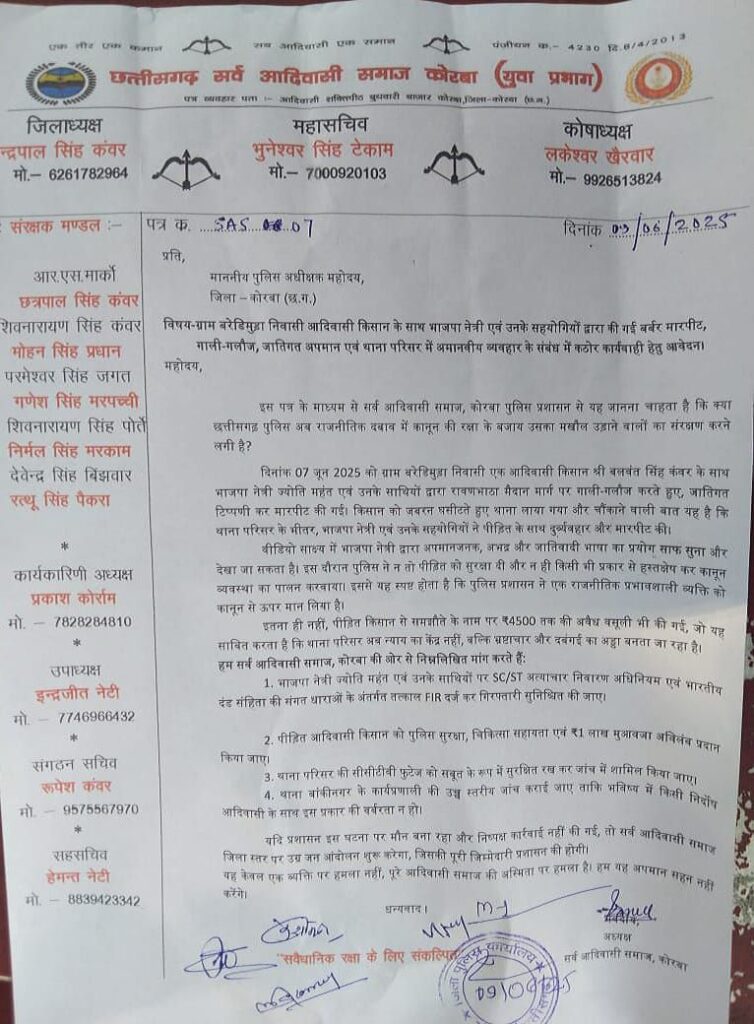 एक तीर एक कमान
सब आदिवासी एक समान
पंजीयन क.- 4230 दि.6/4/2013
छत्तीसगढ़ सर्व आदिवासी समाज कोरबा (युवा प्रभाग)
पत्र व्यवहार पता :- आदिवासी शक्तिपीठ बुधवारी बाजार कोरबा, जिला-कोरबा (छ.ग.)
जिलाध्यक्ष
न्द्रपाल सिंह कंवर
मो.– 6261782964
महासचिव
भुनेश्वर सिंह टेकाम
मो.– 7000920103
कोषाध्यक्ष
लकेश्वर खैरवार
मो.– 9926513824
संरक्षक मण्डल :–
आर.एस.मार्को
छत्रपाल सिंह कंवर
शिवनारायण सिंह कंवर
मोहन सिंह प्रधान
परमेश्वर सिंह जगत
गणेश सिंह मरपच्ची
शिवनारायण सिंह पोर्ते
निर्मल सिंह मरकाम
देवेन्द्र सिंह बिंझवार
रत्थू सिंह पैकरा
*
कार्यकारिणी अध्यक्ष
प्रकाश कोर्राम
मो. – 7828284810
*
उपाध्यक्ष
इन्द्रजीत नेटी
मो. – 7746966432
*
संगठन सचिव
रूपेश कंवर
मो. – 9575567970
*
सहसचिव
हेमन्त नेटी
मो. – 8839423342
पत्र क. SAS 07
दिनांक 09/06/2025
प्रति,
माननीय पुलिस अधीक्षक महोदय,
जिला – कोरबा (छ.ग.)
विषय-ग्राम बरेडिमुड़ा निवासी आदिवासी किसान के साथ भाजपा नेत्री एवं उनके सहयोगियों द्वारा की गई बर्बर मारपीट,
गाली-गलौज, जातिगत अपमान एवं थाना परिसर में अमानवीय व्यवहार के संबंध में कठोर कार्यवाही हेतु आवेदन।
महोदय,
इस पत्र के माध्यम से सर्व आदिवासी समाज, कोरबा पुलिस प्रशासन से यह जानना चाहता है कि क्या
छत्तीसगढ़ पुलिस अब राजनीतिक दबाव में कानून की रक्षा के बजाय उसका मखौल उड़ाने वालों का संरक्षण करने
लगी है?
दिनांक 07 जून 2025 को ग्राम बरेडिमुड़ा निवासी एक आदिवासी किसान श्री बलवंत सिंह कंवर के साथ
भाजपा नेत्री ज्योति महंत एवं उनके साथियों द्वारा रावणभाठा मैदान मार्ग पर गाली-गलौज करते हुए, जातिगत
टिप्पणी कर मारपीट की गई। किसान को जबरन घसीटते हुए थाना लाया गया और चौंकाने वाली बात यह है कि
थाना परिसर के भीतर, भाजपा नेत्री एवं उनके सहयोगियों ने पीड़ित के साथ दुर्व्यवहार और मारपीट की।
वीडियो साक्ष्य में भाजपा नेत्री द्वारा अपमानजनक, अभद्र और जातिवादी भाषा का प्रयोग साफ सुना और
देखा जा सकता है। इस दौरान पुलिस ने न तो पीड़ित को सुरक्षा दी और न ही किसी भी प्रकार से हस्तक्षेप कर कानून
व्यवस्था का पालन करवाया। इससे यह स्पष्ट होता है कि पुलिस प्रशासन ने एक राजनीतिक प्रभावशाली व्यक्ति को
कानून से ऊपर मान लिया है।
इतना ही नहीं, पीड़ित किसान से समझौते के नाम पर ₹4500 तक की अवैध वसूली भी की गई, जो यह
साबित करता है कि थाना परिसर अब न्याय का केंद्र नहीं, बल्कि भ्रष्टाचार और दबंगई का अड्डा बनता जा रहा है।
हम सर्व आदिवासी समाज, कोरबा की ओर से निम्नलिखित मांग करते हैं:
1. भाजपा नेत्री ज्योति महंत एवं उनके साथियों पर SC/ST अत्याचार निवारण अधिनियम एवं भारतीय
दंड संहिता की संगत धाराओं के अंतर्गत तत्काल FIR दर्ज कर गिरफ्तारी सुनिश्चित की जाए।
2. पीड़ित आदिवासी किसान को पुलिस सुरक्षा, चिकित्सा सहायता एवं ₹1 लाख मुआवजा अविलंब प्रदान
किया जाए।
3. थाना परिसर की सीसीटीवी फुटेज को सबूत के रूप में सुरक्षित रख कर जांच में शामिल किया जाए।
4. थाना बांकीनगर के कार्यप्रणाली की उच्च स्तरीय जांच कराई जाए ताकि भविष्य में किसी निर्दोष
आदिवासी के साथ इस प्रकार की बर्बरता न हो।
यदि प्रशासन इस घटना पर मौन बना रहा और निष्पक्ष कार्रवाई नहीं की गई, तो सर्व आदिवासी समाज
जिला स्तर पर उग्र जन आंदोलन शुरू करेगा, जिसकी पूरी जिम्मेदारी प्रशासन की होगी।
यह केवल एक व्यक्ति पर हमला नहीं, पूरे आदिवासी समाज की अस्मिता पर हमला है। हम यह अपमान सहन नहीं
करेंगे।
धन्यवाद।
अध्यक्ष
सर्व आदिवासी समाज, कोरबा
"सवैधानिक रक्षा के लिए संकल्पित
जिला पुलिस कार्यालय